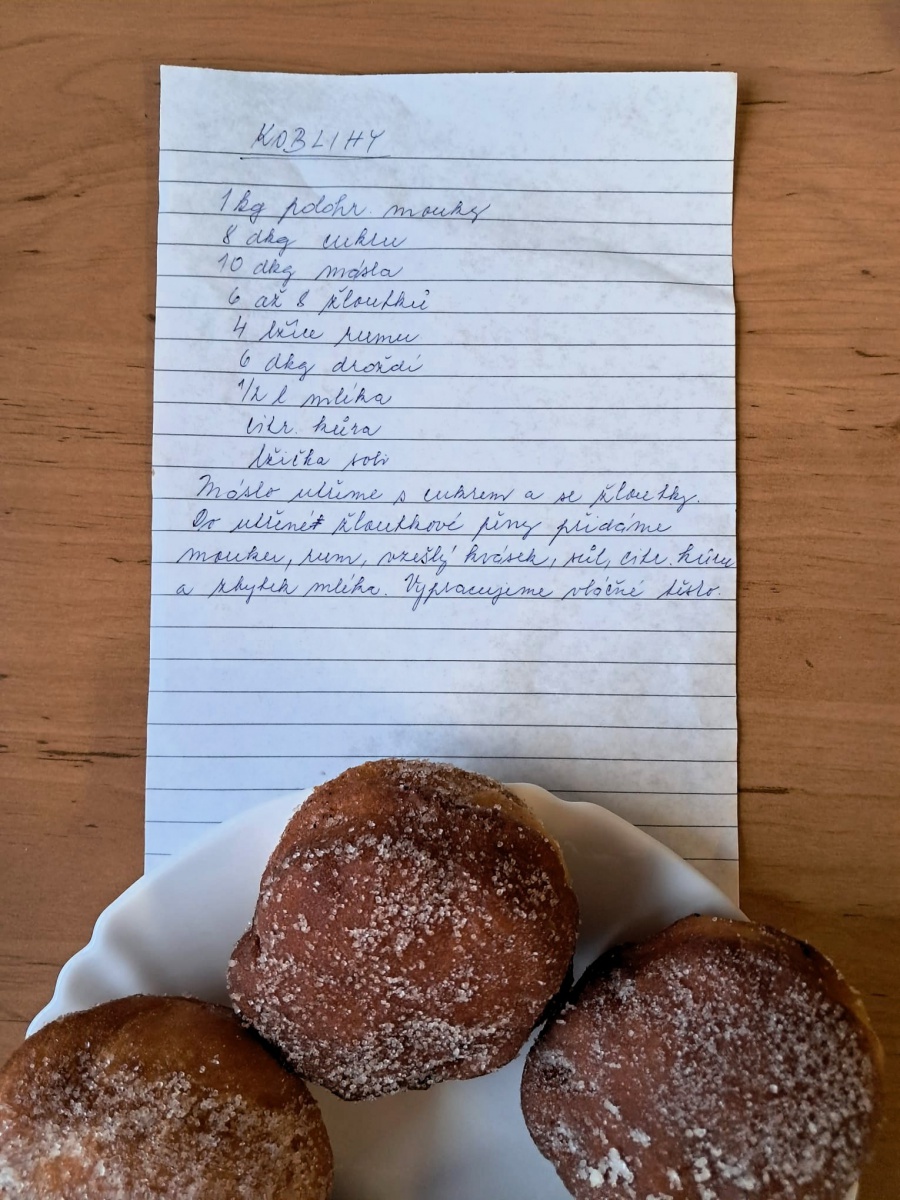 KOBLIHY
1 kg polohr. mouky
8 dkg cukru
10 dkg másla
6 až 8 žloutků
4 lžíce rumu
6 dkg droždí
1/2 l mléka
citr. kůra
lžička soli
Máslo utřeme s cukrem a se žloutky.
Do utřené žloutkové pěny přidáme
mouku, rum, vzešlý kvásek, sůl, citr. kůru
a zbytek mléka. Vypracujeme vláčné těsto.